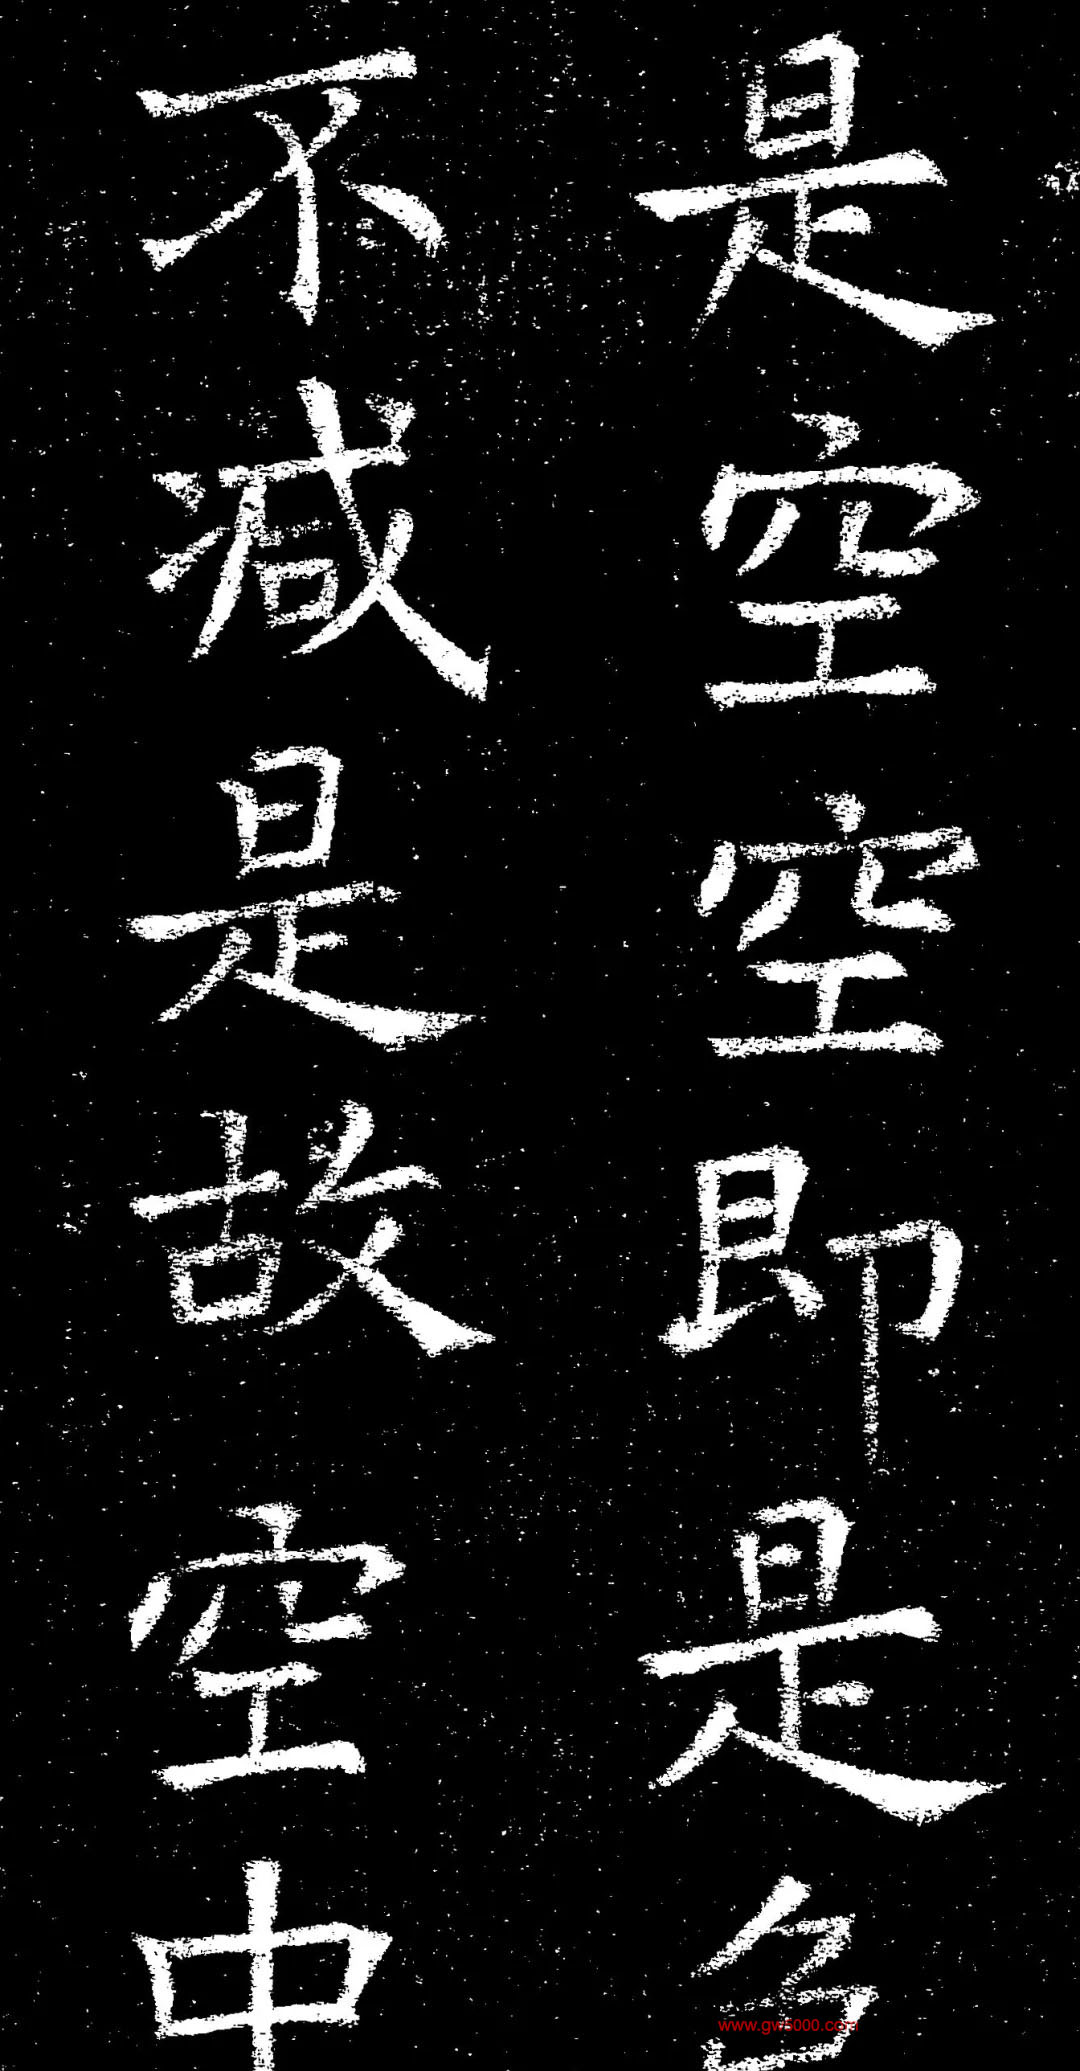 是空空即是色
不減是故空中
www.gw5000.com